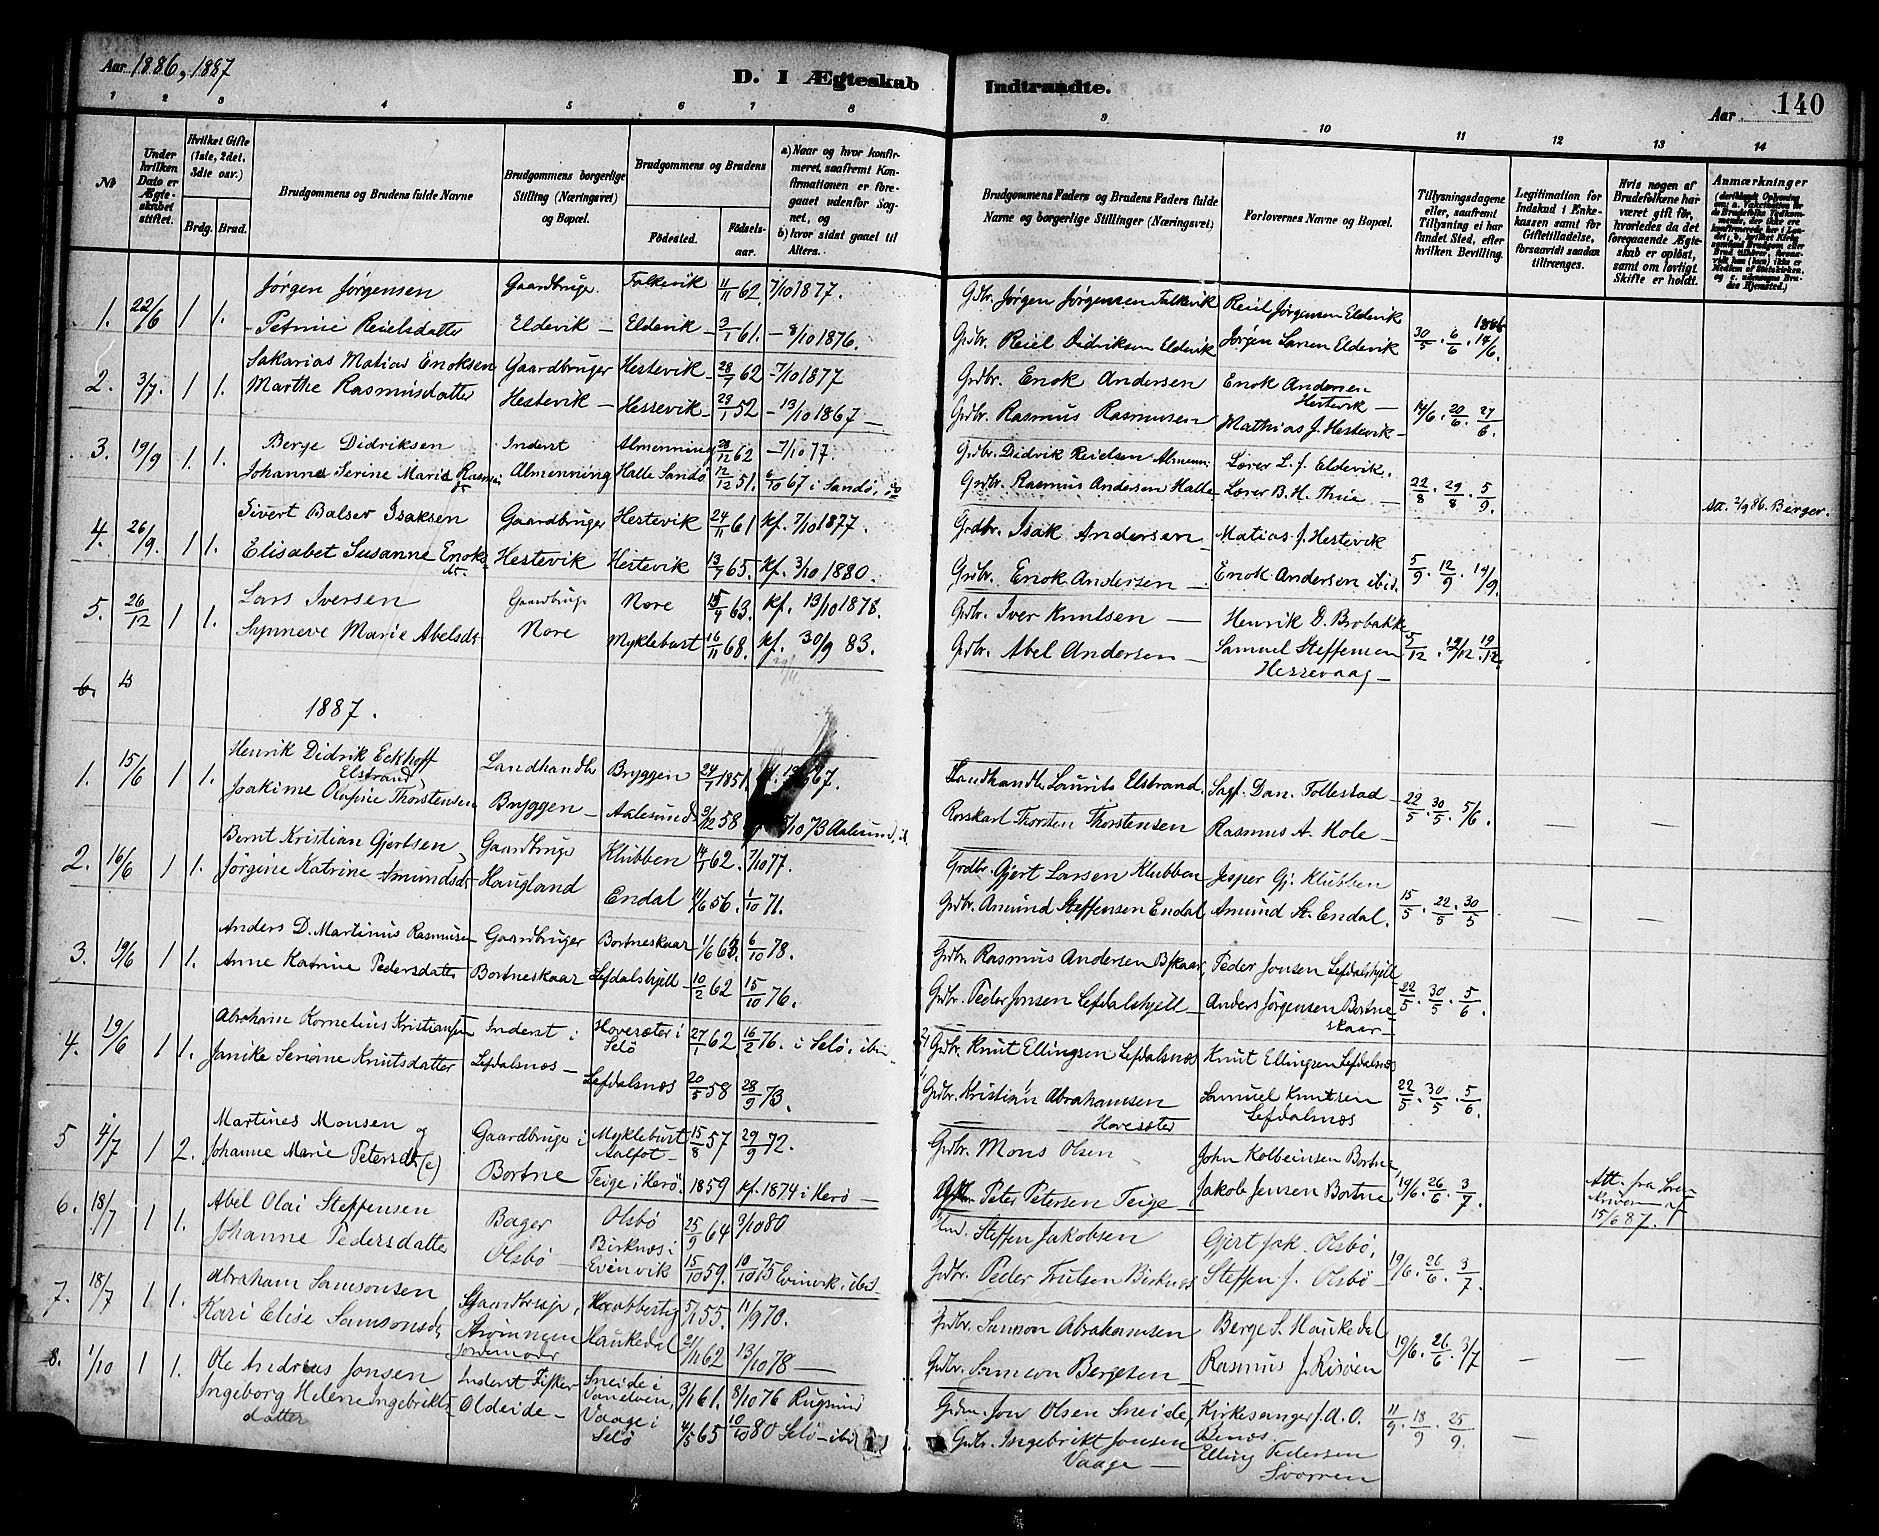 Aar 1886, 1887
D. I Ægteskab Indtraadte.
Aar 140
1 2 3 4 5 6 7 8 9 10 11 12 13 14
No
Under hvilken Dato er Ægteskabet stiftet.
Hvilket Gifte (1ste, 2det, 3die osv.)
Brdg. Brud.
Brudgommens og Brudens fulde Navne
Brudgommens borgerlige Stilling (Næringsvei) og Bopæl.
Brudgommens og Brudens
Fødested.
Fødselsaar.
a) Naar og hvor konfirmeret, saafremt Konfirmationen er foregaaet udenfor Sognet, og
b) hvor sidst gaaet til Alters.
Brudgommens Faders og Brudens Faders fulde Navne og borgerlige Stillinger (Næringsvei)
Forlovernes Navne og Bopæl.
Tillysningsdagene eller, saafremt Tillysning ei har fundet Sted, efter hvilken Bevilling.
Legitimation for Indskud i Enkekassen samt for Giftetilladelse, forsaavidt saadan tiltrænges.
Hvis nogen af Brudefolkene har været gift før, hvorledes da det foregaaende Ægteskab er opløst, samt om lovligt Skifte er holdt.
Anmærkninger
1. 22/6 1 1. Jørgen Jørgensen Gaardbruge. Falkevik 11/11 62 7/10 1877. Gdbr. Jørgen Jørgensen Falkevik Reiel Jørgensen Eldevik 1886
Petrnie Reielsdatter Eldevik — Eldevik 3/1 61. — 8/10 1876. Grdbr. Reiel Didriksen Eldevik Jørgen Larsen Eldevik 30/5. 6/6. 14/6.
2. 3/7. 1 1. Sakarias Matias Enoksen Gaardbruger Hestevik 28/7 62 — 7/10 1877 Grdbr. Enok Andersen Enok Andersen Hestevik —
Marthe Rasmusdatter Hestevik — Hessevik 23/1 52 — 13/10 1867 — Grdbr. Rasmus Rasmussen Mathias J. Hestevik 14/6. 20/6. 27/6.
3. 19/9 1. 1. Berge Didriksen Inderst Almenning 28/12 62 — 7/10 77. Grdbr. Didvik Reielsen Almenn: Lærer L. J. Eldevik.
Johanne Serine Marie Rasms: Almenning Halle Sandö 12/12 51. 6/10 67 i Sandö, Grdbr. Rasmus Andersen Halle Lærer B. H. Thue — 22/8. 29/8. 5/9. sa. 2/9 86. Berger.
4. 26/9. 1 1. Sivert Balser Isaksen Gaardbruger Hestevik 24/11 61 kf. 7/10 1877. Grdbr. Isak Andersen Matias J. Hestevik
Elisabet Susanne Enoksdt. Hestevik Hestevik 13/7 65. kf. 3/10 1880. Grdbr. Enok Andersen — Enok Andersen ibid. 5/9. 12/9. 19/9.
5. 26/12 1 1. Lars Iversen Gaardbruge Nore 15/4 63. kf. 13/10 1878. Grdbr. Iver Knutsen — Henrik D. Brobakke
Synneve Marie Abelsdt. Nore Myklebust 16/11 68. kf. 30/9 83. Grdbr. Abel Andersen — Samuel Steffensen Hessevaag — 5/12. 12/12. 19/12.
6.
1887.
1. 15/6 1 1. Henrik Didrik Eckhoff Elstrand Landhandlr Bryggen 24/7 1851. Landhandlr Laurits Elstrand Sagf. Dan. Tollestad
Joakime Olufsie Thorstensen Bryggen — Aalesund 3/12 58 5/10 73 Aalesund, Rorskarl Thorsten Thorstensen Rasmus A. Hole — 22/5. 30/5. 5/6. — —
2. 16/6 1 1. Bernt Kristian Gjertsen Gaardbruge Klubben 14/1 62. 7/10 77. Grdbr. Gjert Larsen Klubben Jesper Gj. Klubben
Jørgine Katrine Amundsdt. Haugland Endal 11/6 56. 1/10 71. Grdbr. Amund Steffensen Endal Amund St. Endal. 15/5. 22/5. 30/5 — —
3. 19/6 1 1. Anders D. Martinus Rasmussen Gaardbruger Bortneskaar 1/6 63. 6/10 78. Grdbr. Rasmus Andersen Bskaar, Peder Jonsen Lefdalshjell
Anne Katrine Pedersdatter Bortneskaar Lefdalshjell 10/2 62 15/10 76. Grdbr. Peder Jonsen Lefdalshjell — Anders Jørgensen Bortneskaar — 22/5. 30/5. 5/6.
4. 19/6 1 1. Abraham Kornelius Kristiansen Inderst i Hovesæter i Selö 27/1 62 16/2 76. i Selö, ibid. 2) Grdbr. Knut Ellingsen Lefdalsnæs Knut Ellingsen Lefdalsnæs
Janike Serine Knutsdatter Lefdalsnæs — Lefdalsnæs 20/5 58 28/9 73. 1) Grdbr. Kristian Abrahamsen Hovesæter Samuel Knutsen Lefdalsnæs 22/5. 30/5. 5/6.
5 4/7 1 2. Martines Monsen og Gaardbruge i Myklebust Aalfot — 15/8 57 29/9 72. Grdbr. Mons Olsen John Kolbeinsen Bortne
Johanne Marie Petersdt. (e) Bortne Teige i Herö. 1859 kf. 1874 i Herö — Peter Petersen Teige Jakob Jensen Bortne 19/6. 26/6. 3/7. Att. fra 15/6 87.
6. 18/7 1 1. Abel Olai Steffensen Bager Olsbö 25/9 64 3/10 80 Steffen Jakobsen Gjert Jak. Olsbö,
Johanne Pedersdatter Olsbö Birknæs i Evenvik 15/10 59. 10/10 75 Evinvik, ibid. Grdbr. Peder Trulsen Birknæs Steffen J. Olsbö — 19/6. 26/6. 3/7
7. 18/7 1 1. Abraham Samsonsen Gaardbruge, 5/1 55. 11/9 70. Grdbr. Samson Abrahamsen Berge S. Haukedal
Kari Elise Samsonsdt. Haukedal 21/11 62 13/10 78 — Grdbr. Samson Bergesen Rasmus J. Risöen 19/6. 26/6. 3/7 — —
8. 1/10 1 1. Ole Andreas Jonsen Inderst Fisker Sneide i Vanelven, 3/1 61. 8/10 76 Rugsund Grdm. Jon Olsen Sneide, Kirkesanger J. A. O.
Ingeborg Helene Ingebrikts datter Oldeide — Vaage i Selö 4/5 65 10/10 80 Selö — ibid. Grdbr. Ingebrikt Jonsen Vaage — Elling Pedersen 11/9. 18/9. 25/9. —